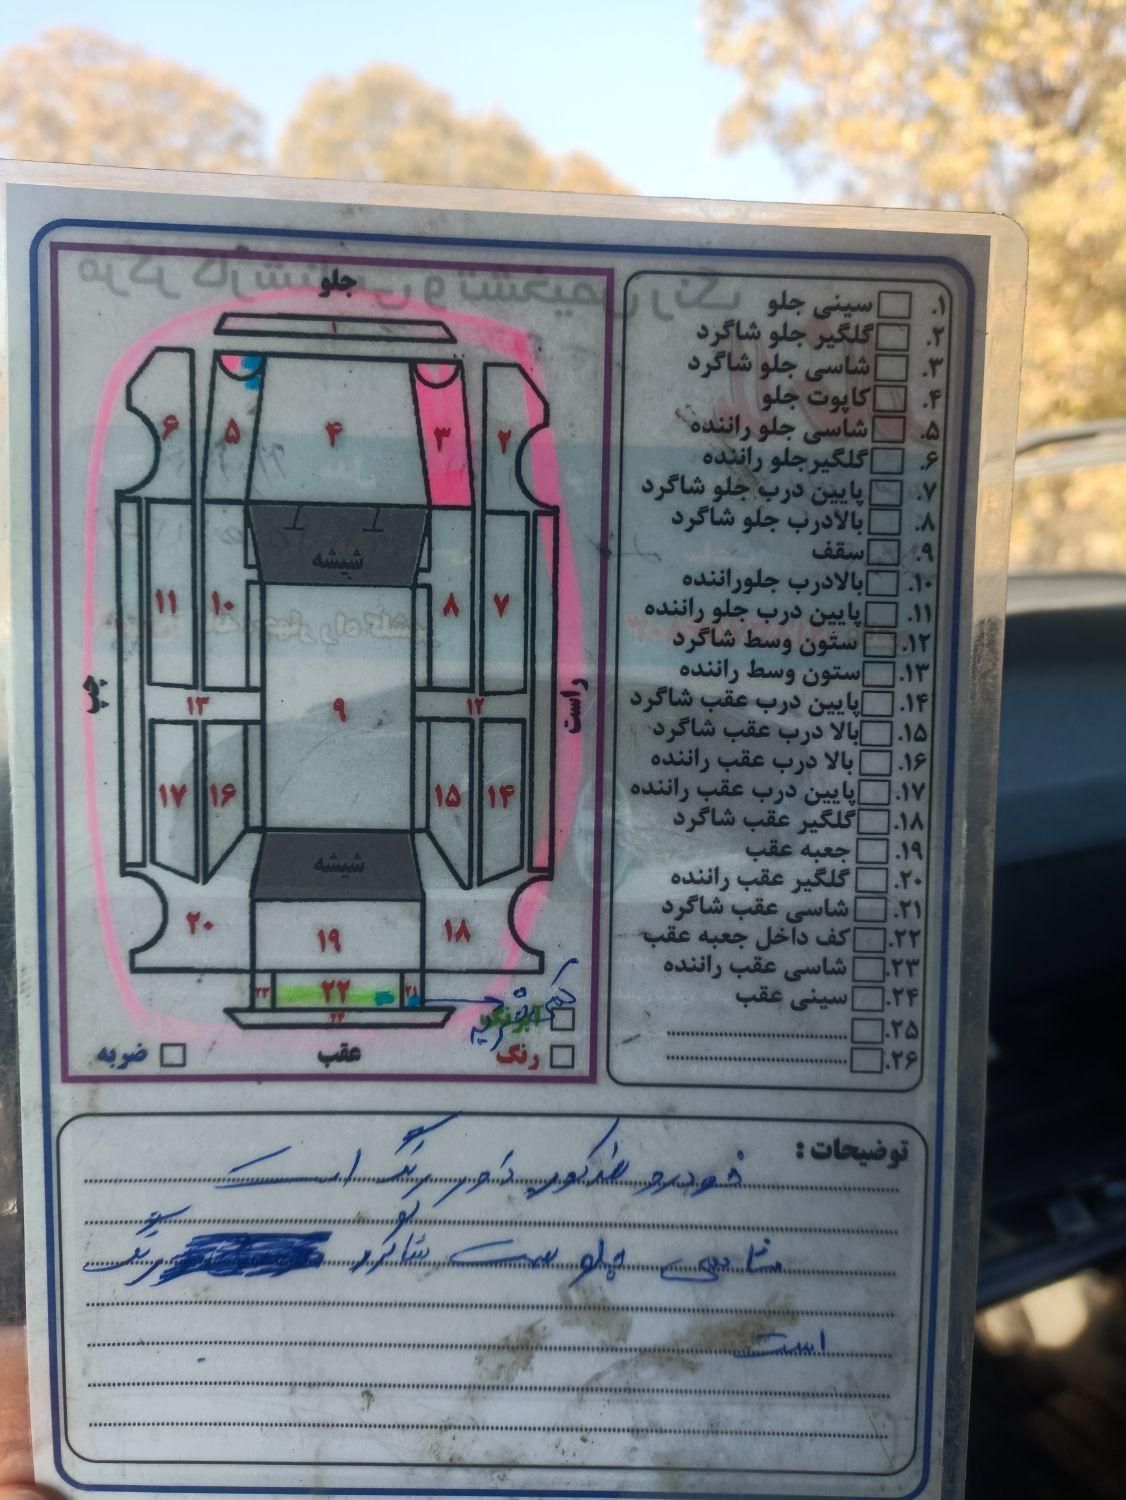 جلو
۱
۶
۵
۴
۳
۲
شیشه
۱۱
۱۰
۸
۷
چپ
راست
۱۳
۹
۱۲
۱۷
۱۶
۱۵
۱۴
شیشه
۲۰
۱۹
۱۸
۲۳
۲۲
۲۱
۲۴
آبرنگ
رنگ
عقب
ضربه
۱. سینی جلو
۲. گلگیر جلو شاگرد
۳. شاسی جلو شاگرد
۴. کاپوت جلو
۵. شاسی جلو راننده
۶. گلگیرجلو راننده
۷. پایین درب جلو شاگرد
۸. بالادرب جلو شاگرد
۹. سقف
۱۰. بالادرب جلوراننده
۱۱. پایین درب جلو راننده
۱۲. ستون وسط شاگرد
۱۳. ستون وسط راننده
۱۴. پایین درب عقب شاگرد
۱۵. بالا درب عقب شاگرد
۱۶. بالا درب عقب راننده
۱۷. پایین درب عقب راننده
۱۸. گلگیر عقب شاگرد
۱۹. جعبه عقب
۲۰. گلگیر عقب راننده
۲۱. شاسی عقب شاگرد
۲۲. کف داخل جعبه عقب
۲۳. شاسی عقب راننده
۲۴. سینی عقب
۲۵.
۲۶.
توضیحات :
خودرو مذکور دور رنگ است
شاسی جلو سمت شاگرد رنگ
است